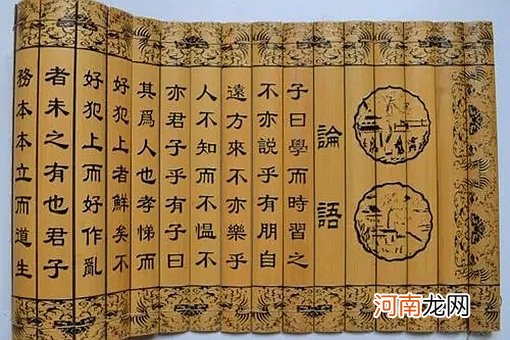 論語
子曰學而時習之
不亦說乎有朋自
遠方來不亦樂乎
人不知而不慍不
亦君子乎有子曰
其爲人也孝悌而
好犯上者鮮矣不
好犯上而好作亂
者未之有也君子
務本本立而道生
河南龙网